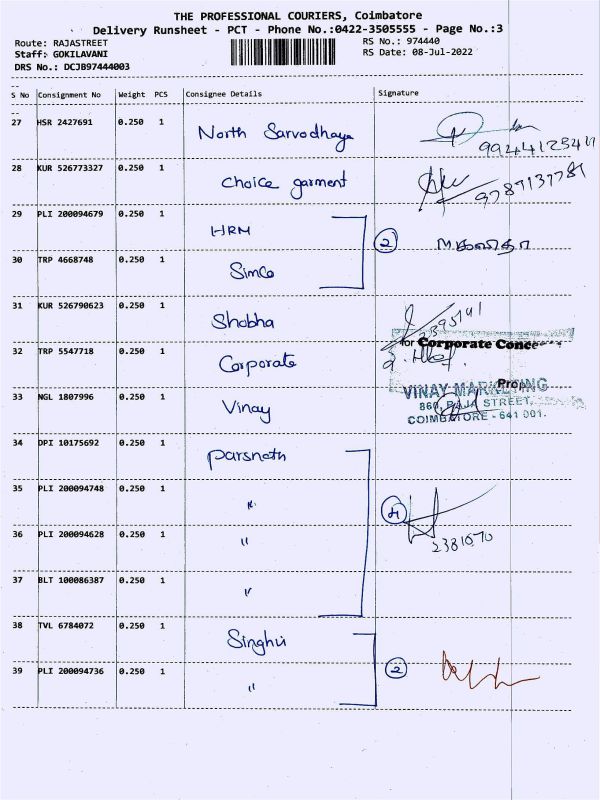 THE PROFESSIONAL COURIERS, Coimbatore
Delivery Runsheet - PCT - Phone No.:0422-3505555 - Page No.:3
Route: RAJASTREET RS No.: 974440
Staff: GOKILAVANI RS Date: 08-Jul-2022
DRS No.: DCJB97444003
S No Consignment No Weight PCS Consignee Details Signature
27 HSR 2427691 0.250 1 North Sarvodhaya
28 KUR 526773327 0.250 1 Choice garment 9787137781
29 PLI 200094679 0.250 1 HRM
②
30 TRP 4668748 0.250 1 Simco
31 KUR 526790623 0.250 1 Shobha
32 TRP 5547718 0.250 1 Corporate for Corporate Conce
33 NGL 1807996 0.250 1 Vinay Prop
VINAY MARKETING
860, RAJA STREET,
COIMBATORE - 641 001.
34 DPI 10175692 0.250 1 Parsnath
35 PLI 200094748 0.250 1 "
④
36 PLI 200094628 0.250 1 " 2381070
37 BLT 100086387 0.250 1 "
38 TVL 6784072 0.250 1 Singhvi
②
39 PLI 200094736 0.250 1 "